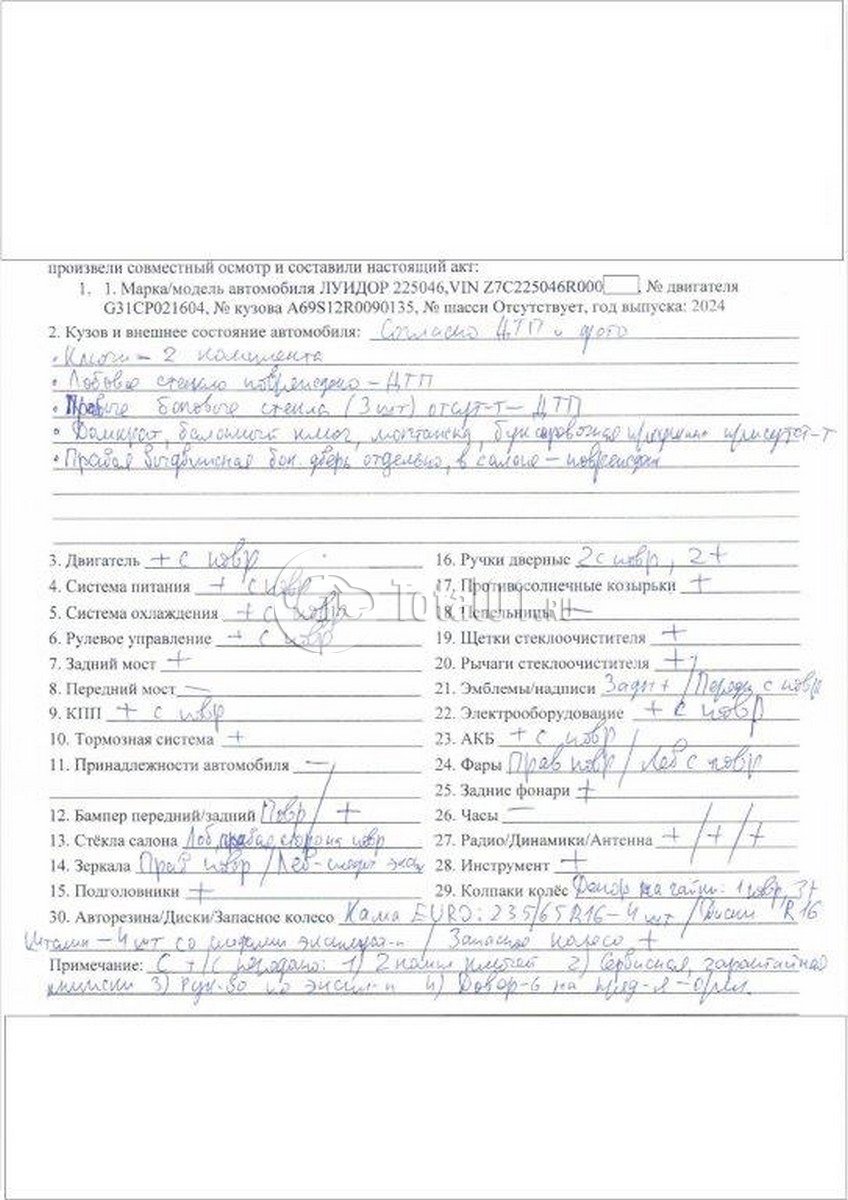 произвели совместный осмотр и составили настоящий акт:
1. 1. Марка/модель автомобиля ЛУИДОР 225046,VIN Z7C225046R000 , № двигателя
G31CP021604, № кузова A69S12R0090135, № шасси Отсутствует, год выпуска: 2024
2. Кузов и внешнее состояние автомобиля: Согласно ДТП и фото
• Ключи – 2 комплекта
• Лобовое стекло повреждено – ДТП
• Правые боковые стекла (3 шт) отсут-т – ДТП
• Домкрат, балонный ключ, монтажка, буксировочная присутст-т
• Правая выдвижная бок. дверь отдельно, в салоне – повреждена
3. Двигатель + с повр
4. Система питания + с повр
5. Система охлаждения + с повр
6. Рулевое управление + с повр
7. Задний мост +
8. Передний мост —
9. КПП + с повр
10. Тормозная система +
11. Принадлежности автомобиля —
12. Бампер передний/задний Повр / +
13. Стёкла салона Лоб, правая сторона повр
14. Зеркала Прав повр / Лев-следы экспл
15. Подголовники +
16. Ручки дверные 2 с повр, 2 +
17. Противосолнечные козырьки +
18. Пепельницы —
19. Щетки стеклоочистителя +
20. Рычаги стеклоочистителя +
21. Эмблемы/надписи Задн + / Передн с повр
22. Электрооборудование + с повр
23. АКБ + с повр
24. Фары Прав повр / Лев с повр
25. Задние фонари +
26. Часы —
27. Радио/Динамики/Антенна + / + / +
28. Инструмент +
29. Колпаки колёс на гайки: 1 повр, 3+
30. Авторезина/Диски/Запасное колесо Кама EURO: 235/65 R16 – 4 шт / Диски R16
Штамп – 4 шт со следами эксплуат-и / Запасное колесо +
Примечание: С т/с передано: 1) 2 ключей 2) Сервисная, гарантийная
книжки 3) Рук-во по экспл-и 4) Довер-ь на
ToknIT.RU